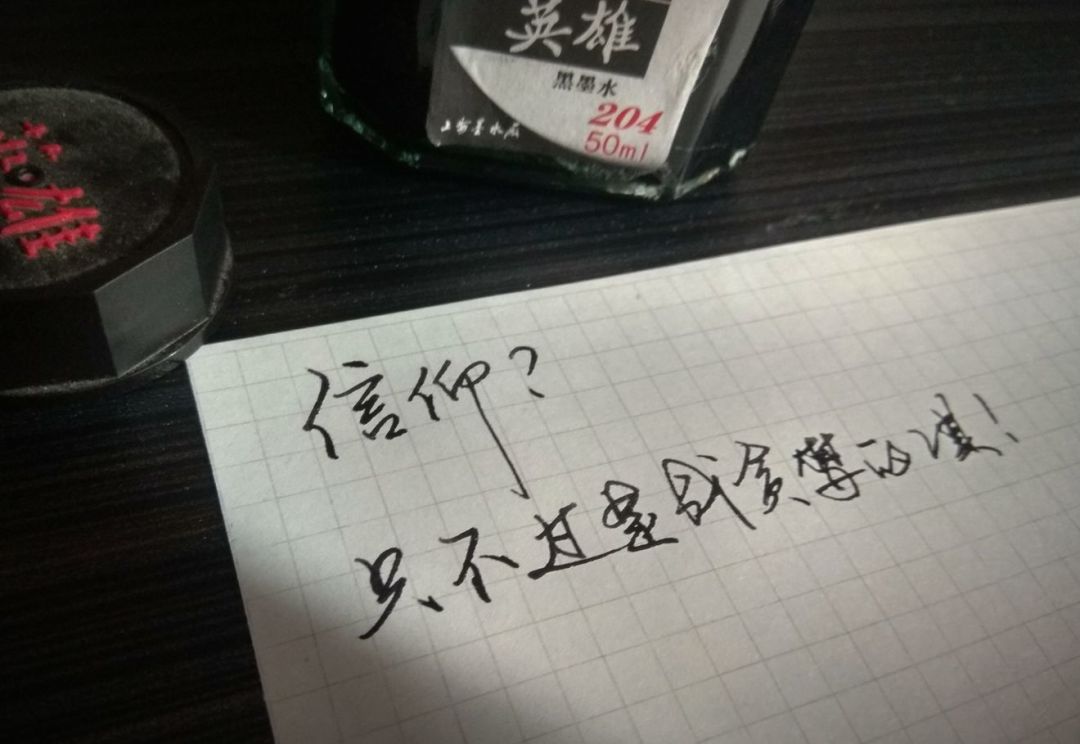 英雄
黑墨水
204
上海墨水厂
50ml
雄
信仰?
只不过是 的 !